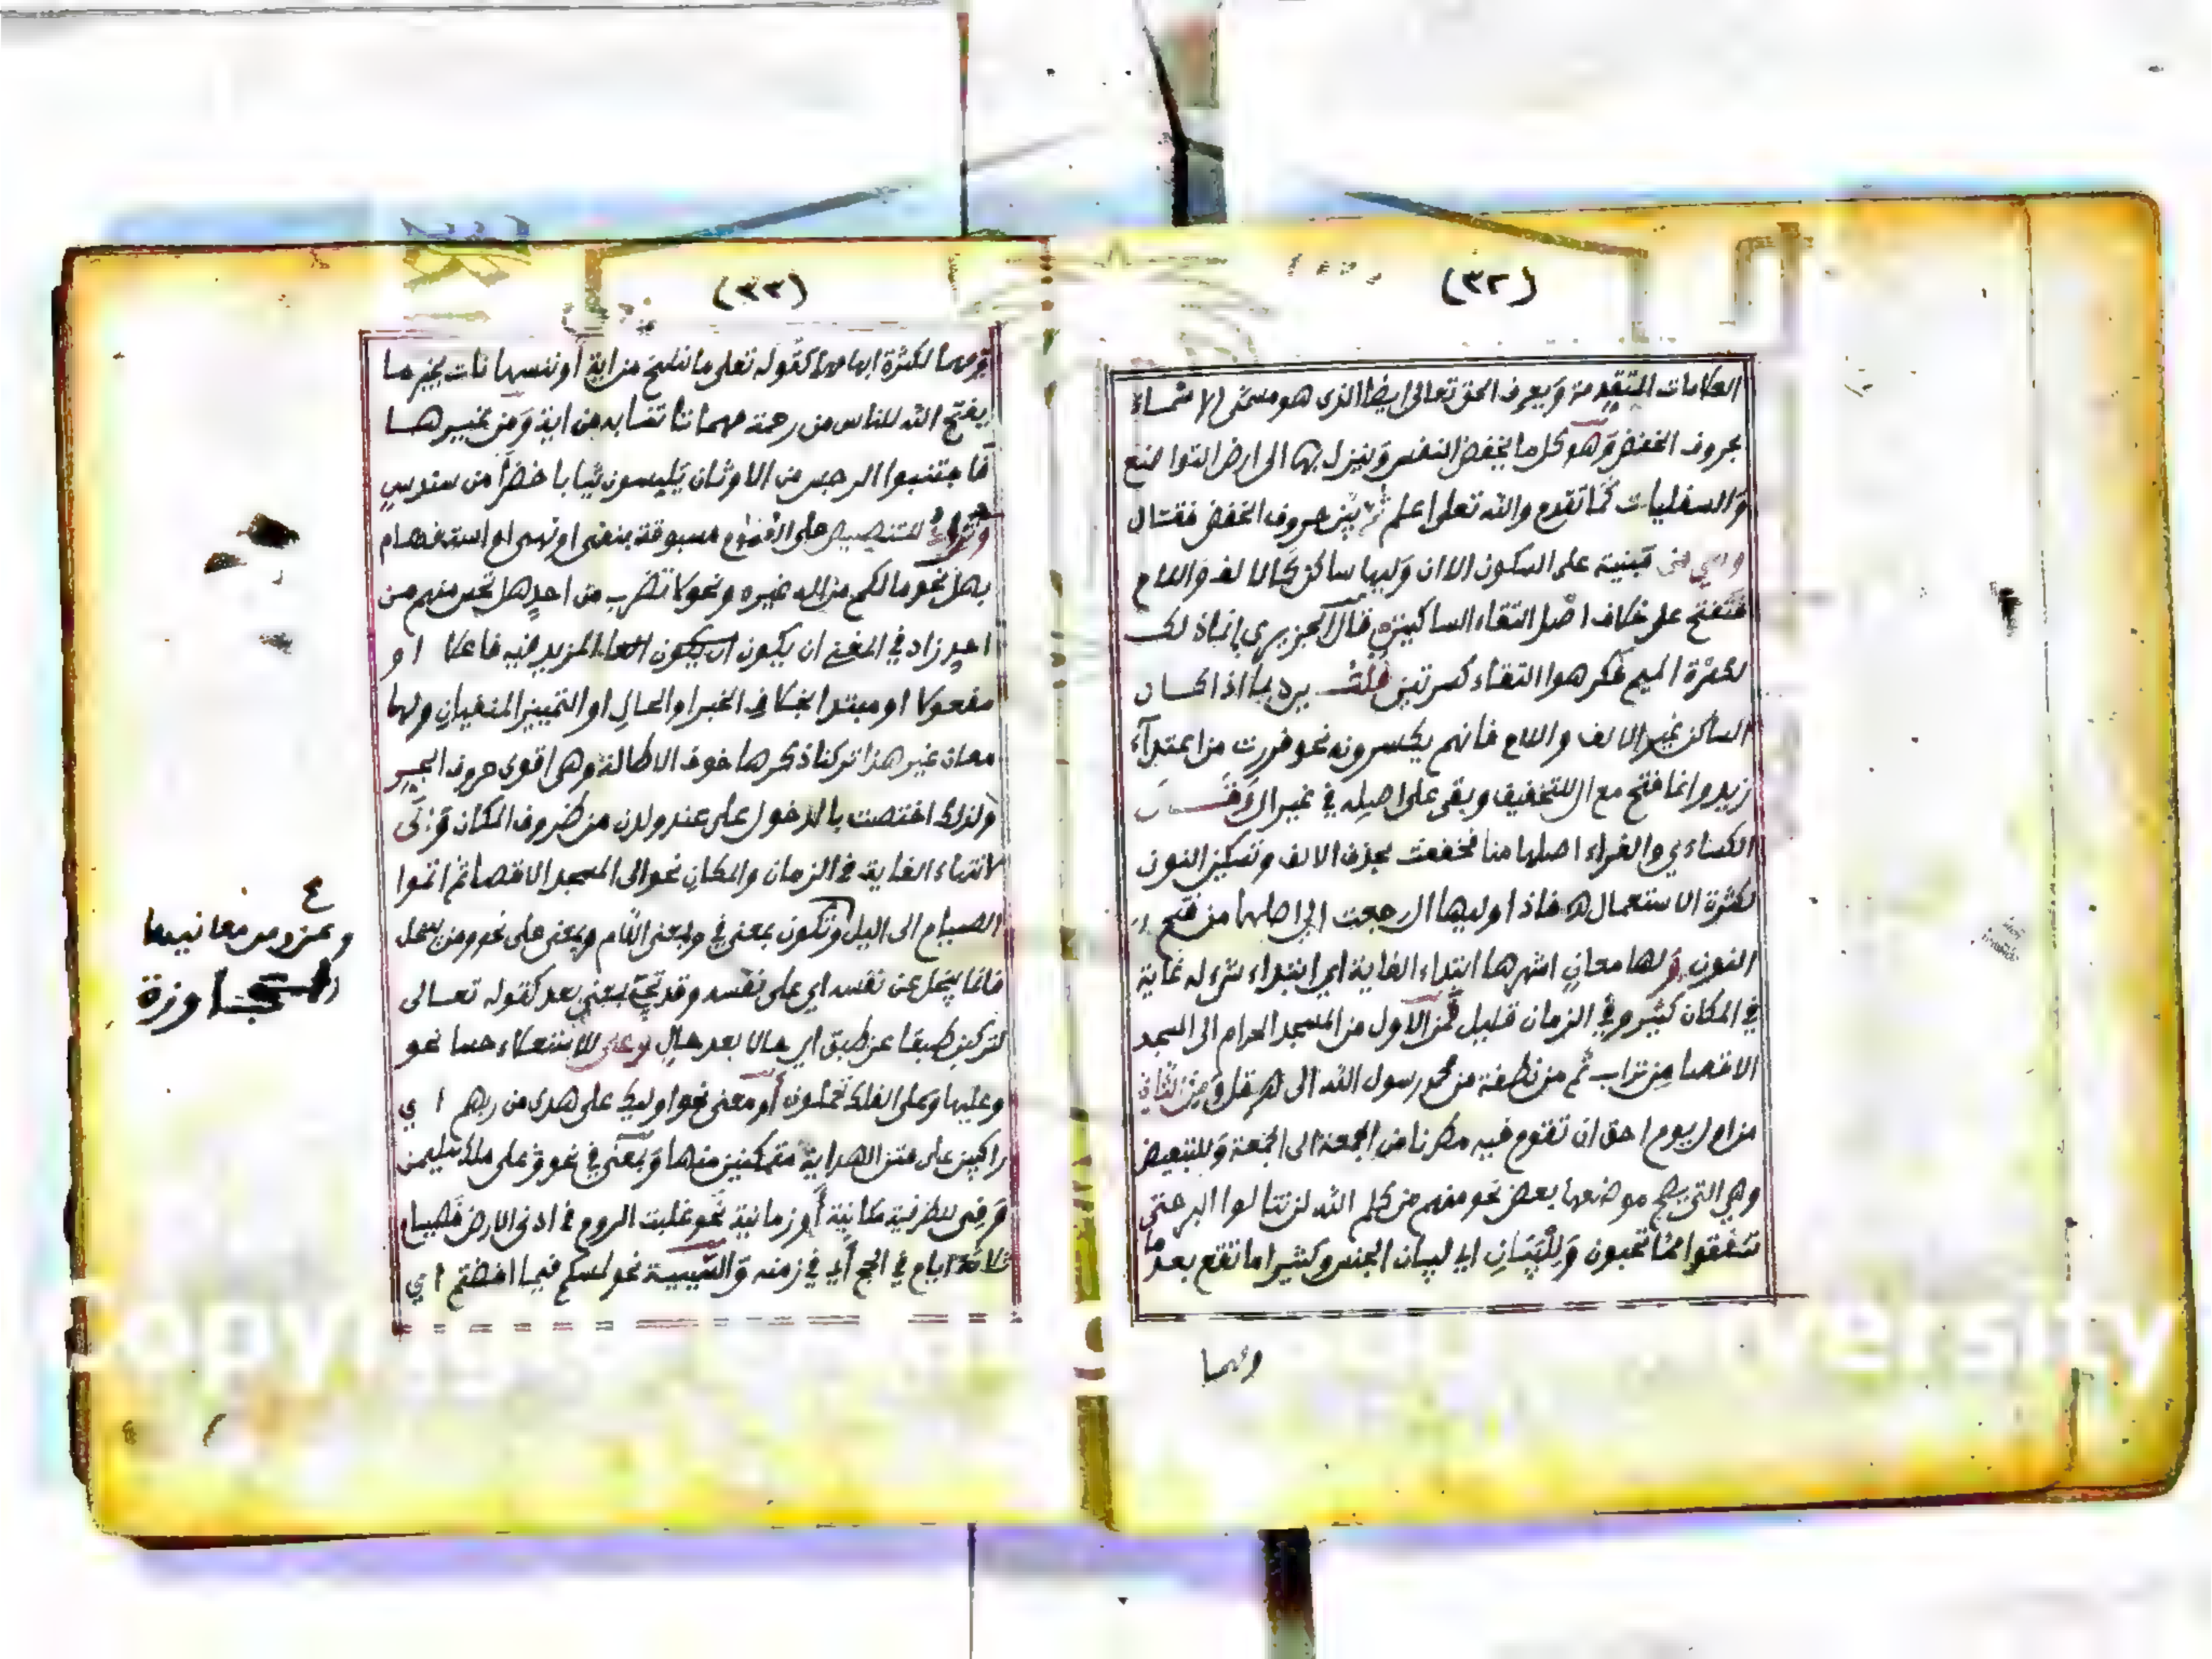 (٣٢)
العلامات المتقدمة ويعرف الحق تعالى ايضا الذي هو مسمى الاسماء
بحروف الخفض وهو كل ما يخفض النفس وينزل بها الى ارض التواضع
والسفليات كما تقدم والله تعلى اعلم ثم بين حروف الخفض فقال
وهي من مبنية على السكون الا ان وليها ساكن كالالف واللام
فتفتح على خلاف اصل التقاء الساكنين قال الجزيري انما ذلك
لكسرة الميم فكرهوا التقاء كسرتين قلت يرد بما اذا كان
الساكن غير الالف واللام فانهم يكسرونه نحو فررت من ابتداء
زيد وانما فتح مع ال للتخفيف وبقي على اصله في غير ال وقال
الكساءي والفراء اصلها منا فخففت بحذف الالف وتسكين النون
لكثرة الاستعمال فاذا وليها ال رجعت الى اصلها من فتح
النون ولها معان اشهرها ابتداء الغاية اي ابتداء شيء له غاية
في المكان كثير وفي الزمان قليل فمن الاول من المسجد الحرام الى المسجد
الاقصا من تراب ثم من نطفة من محمد رسول الله الى هرقل ومن الثاني
من اول يوم احق ان تقوم فيه مطرنا من الجمعة الى الجمعة وللتبعيض
وهي التي يصح موضعها بعض نحو منهم من كلم الله لن تنالوا البر حتى
تنفقوا مما تحبون وللبيان اي لبيان الجنس وكثيرا ما تقع بعد ما
ومهما
(٣٣)
ومهما لكثرة ابهامهما كقوله تعلى ما ننسخ من اية أو ننسها نات بخير ما
يفتح الله للناس من رحمة مهما تاتنا به من اية ومن غيرها
فاجتنبوا الرجس من الاوثان يلبسون ثيابا خضرا من سندس
للتنصيص على العموم مسبوقة بنفى او نهى او استفهام
بهل نحو ما لكم من اله غيره ونحو لا تضرب من احد هل تحس منهم من
احد زاد في المغنى ان يكون ان يكون المزيد فيه فاعلا او
مفعولا او مبتدا بخلاف الخبر او الحال او التمييز المنفيان ولها
معان غير هذا تركنا ذكرها خوف الاطالة وهي اقوى حروف الجر
ولذلك اختصت بالدخول على عند ولدن من ظروف المكان وإلى
لانتهاء الغاية في الزمان والمكان نحو الى المسجد الاقصا ثم اتموا
الصيام الى اليل وتكون بمعنى في وبمعنى اللام وبمعنى على نحو ومن يبخل
فانما يبخل عن نفسه اي على نفسه وقد تجئ بمعنى بعد كقوله تعالى
لتركبن طبقا عن طبق اي حالا بعد حال وعلى للاستعلاء حسا نحو
وعليها وعلى الفلك تحملون أو معنى نحو اوليك على هدى من ربهم اي
راكبين على متن الهداية متمكنين منها وبمعنى في نحو على ملك سليمن
وفي للظرفية مكانية أو زمانية نحو غلبت الروم في ادنى الارض فصيام
ثلاثة ايام في الحج أي في زمنه والسببية نحو لمسكم فيما افضتم اي
٤
وعن ومن معانيها
المجاوزة